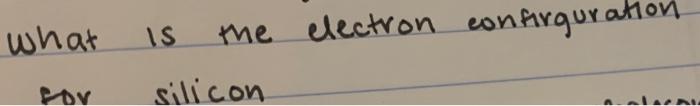 what is the electron confirguration
for silicon